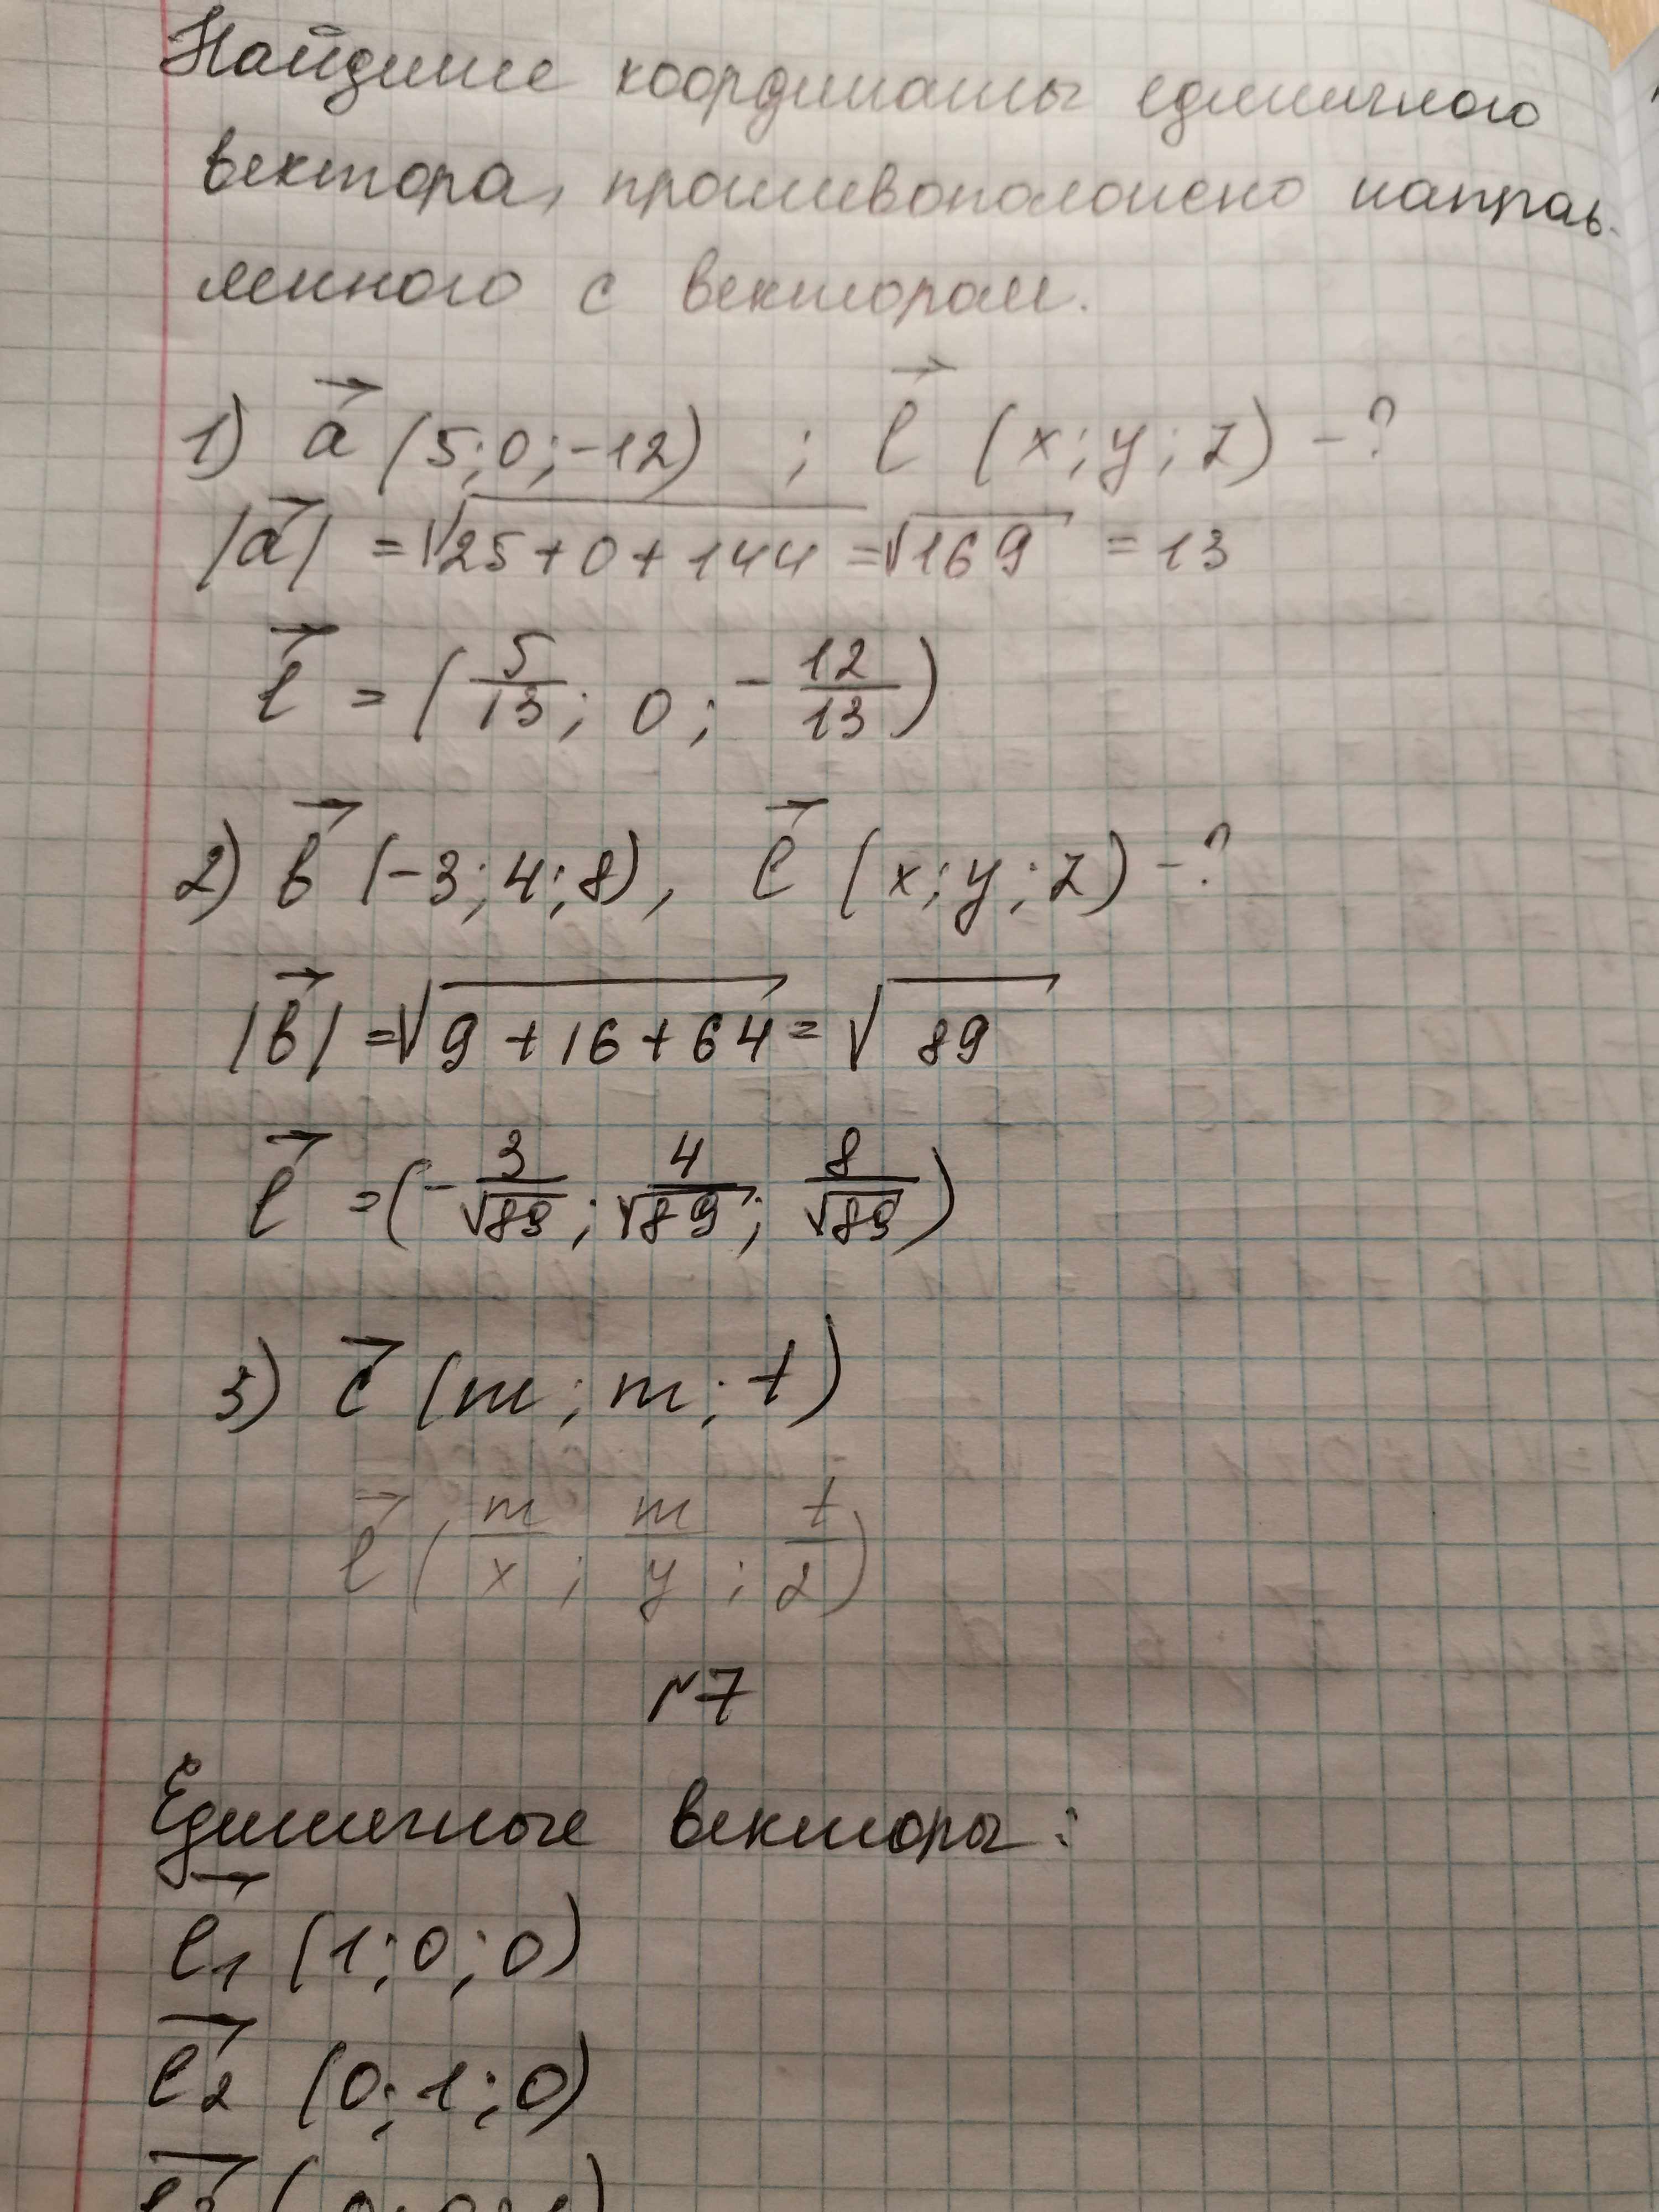 Найдите координаты единичного
вектора, противоположено направ-
ленного с вектором.
1) a⃗ (5;0;-12) ; l⃗ (x;y;z) -?
|a⃗| = √25+0+144 = √169 = 13
l⃗ = (5/13; 0; -12/13)
2) b⃗ (-3;4;8), l⃗ (x;y;z) -?
|b⃗| = √9+16+64 = √89
l⃗ = (-3/√89; 4/√89; 8/√89)
3) c⃗ (m;m;t)
l⃗ (m/x; m/y; t/z)
N7
Единичные векторы:
l₁⃗ (1;0;0)
l₂⃗ (0;1;0)